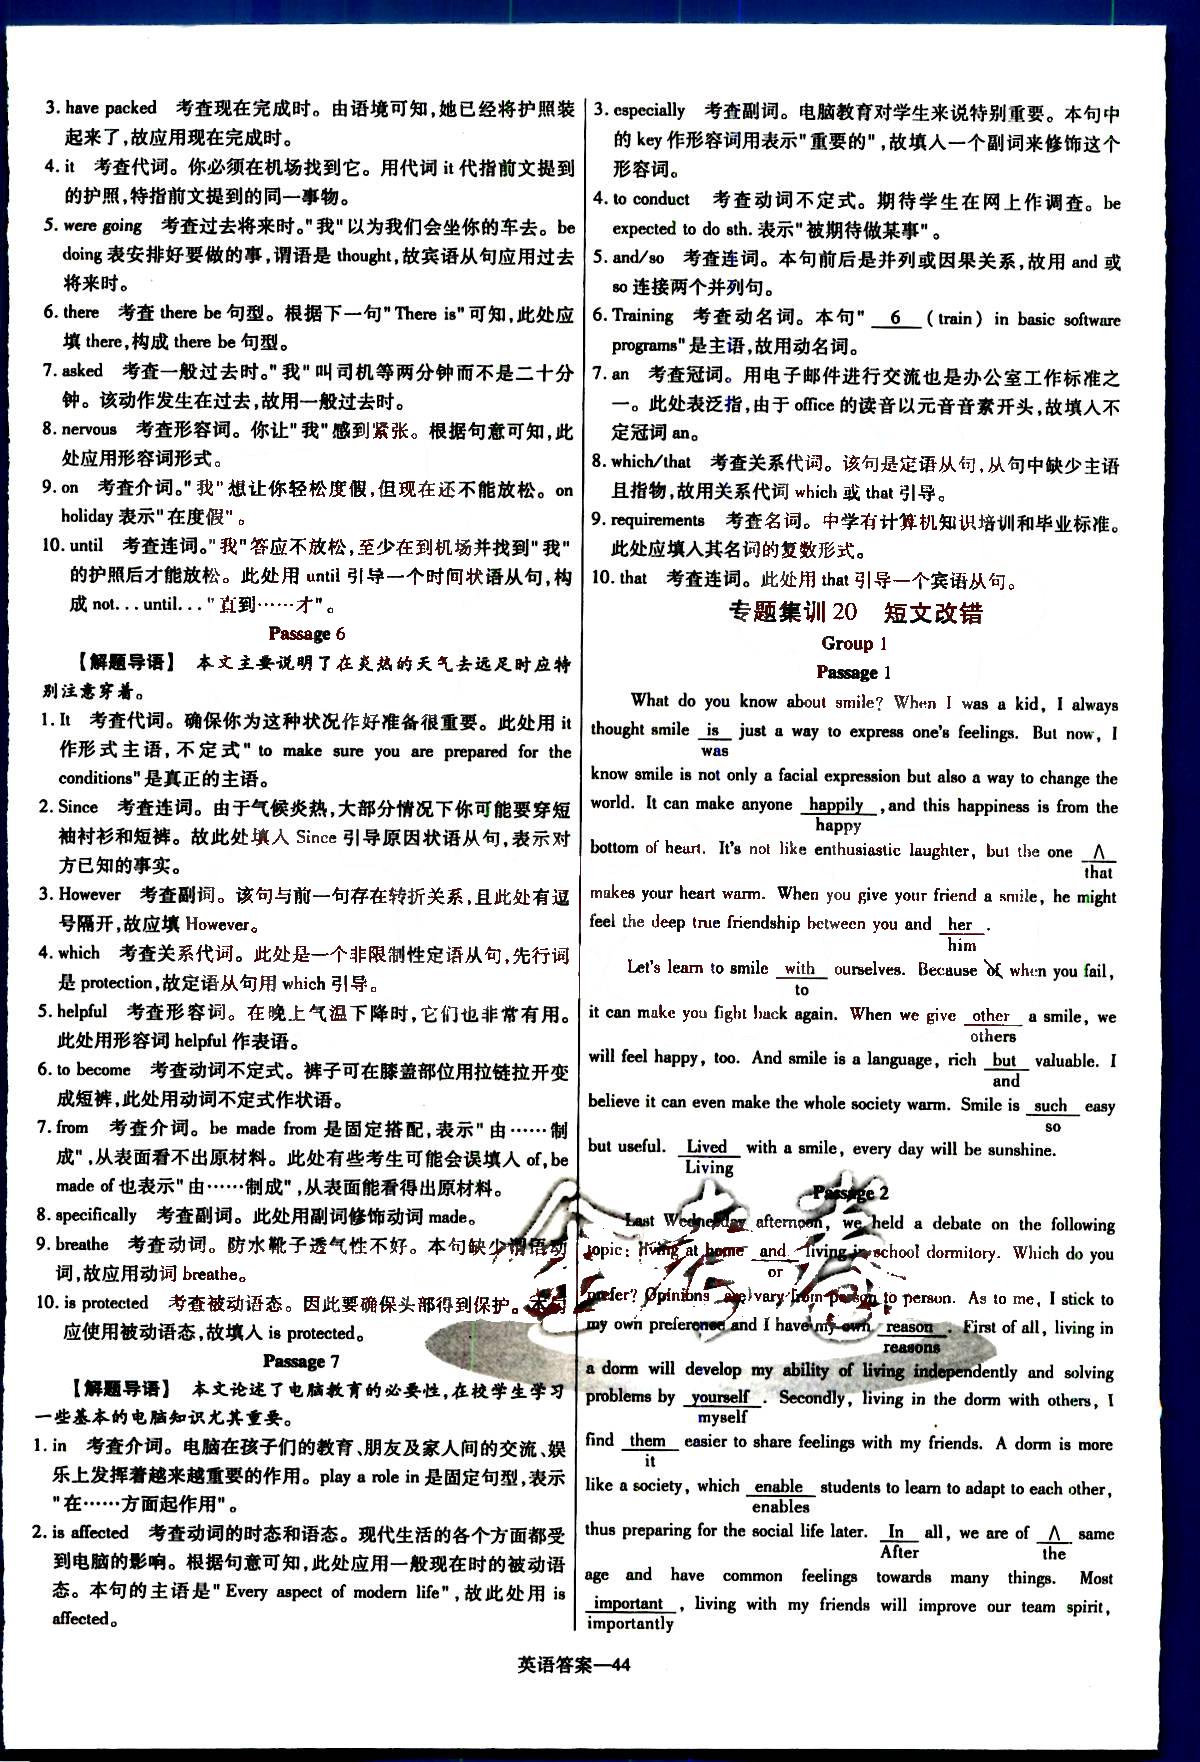 3. have packed 考查现在完成时。由语境可知,她已经将护照装
起来了,故应用现在完成时。
4. it 考查代词。你必须在机场找到它。用代词 it 代指前文提到
的护照,特指前文提到的同一事物。
5. were going 考查过去将来时。"我"以为我们会坐你的车去。be
doing 表安排好要做的事,谓语是 thought,故宾语从句应用过去
将来时。
6. there 考查 there be 句型。根据下一句"There is"可知,此处应
填 there,构成 there be 句型。
7. asked 考查一般过去时。"我"叫司机等两分钟而不是二十分
钟。该动作发生在过去,故用一般过去时。
8. nervous 考查形容词。你让"我"感到紧张。根据句意可知,此
处应用形容词形式。
9. on 考查介词。"我"想让你轻松度假,但现在还不能放松。on
holiday 表示"在度假"。
10. until 考查连词。"我"答应不放松,至少在到机场并找到"我"
的护照后才能放松。此处用 until 引导一个时间状语从句,构
成 not. . . until. . . "直到……才"。
Passage 6
【解题导语】 本文主要说明了在炎热的天气去远足时应特
别注意穿着。
1. It 考查代词。确保你为这种状况作好准备很重要。此处用 it
作形式主语,不定式" to make sure you are prepared for the
conditions"是真正的主语。
2. Since 考查连词。由于气候炎热,大部分情况下你可能要穿短
袖衬衫和短裤。故此处填入 Since 引导原因状语从句,表示对
方已知的事实。
3. However 考查副词。该句与前一句存在转折关系,且此处有逗
号隔开,故应填 However。
4. which 考查关系代词。此处是一个非限制性定语从句,先行词
是 protection,故定语从句用 which 引导。
5. helpful 考查形容词。在晚上气温下降时,它们也非常有用。
此处用形容词 helpful 作表语。
6. to become 考查动词不定式。裤子可在膝盖部位用拉链拉开变
成短裤,此处用动词不定式作状语。
7. from 考查介词。be made from 是固定搭配,表示"由……制
成",从表面看不出原材料。此处有些考生可能会误填入 of,be
made of 也表示"由……制成",从表面能看得出原材料。
8. specifically 考查副词。此处用副词修饰动词 made。
9. breathe 考查动词。防水靴子透气性不好。本句缺少谓语动
词,故应用动词 breathe。
10. is protected 考查被动语态。因此要确保头部得到保护。本句
应使用被动语态,故填入 is protected。
Passage 7
【解题导语】 本文论述了电脑教育的必要性,在校学生学习
一些基本的电脑知识尤其重要。
1. in 考查介词。电脑在孩子们的教育、朋友及家人间的交流、娱
乐上发挥着越来越重要的作用。play a role in 是固定句型,表示
"在……方面起作用"。
2. is affected 考查动词的时态和语态。现代生活的各个方面都受
到电脑的影响。根据句意可知,此处应用一般现在时的被动语
态。本句的主语是" Every aspect of modern life",故此处用 is
affected。
3. especially 考查副词。电脑教育对学生来说特别重要。本句中
的 key 作形容词用表示"重要的",故填入一个副词来修饰这个
形容词。
4. to conduct 考查动词不定式。期待学生在网上作调查。be
expected to do sth. 表示"被期待做某事"。
5. and/so 考查连词。本句前后是并列或因果关系,故用 and 或
so 连接两个并列句。
6. Training 考查动名词。本句" 6 (train) in basic software
programs"是主语,故用动名词。
7. an 考查冠词。用电子邮件进行交流也是办公室工作标准之
一。此处表泛指,由于 office 的读音以元音音素开头,故填入不
定冠词 an。
8. which/that 考查关系代词。该句是定语从句,从句中缺少主语
且指物,故用关系代词 which 或 that 引导。
9. requirements 考查名词。中学有计算机知识培训和毕业标准。
此处应填入其名词的复数形式。
10. that 考查连词。此处用 that 引导一个宾语从句。
专题集训 20 短文改错
Group 1
Passage 1
What do you know about smile? When I was a kid, I always
thought smile is just a way to express one's feelings. But now, I
was
know smile is not only a facial expression but also a way to change the
world. It can make anyone happily ,and this happiness is from the
happy
bottom of heart. It's not like enthusiastic laughter, but the one ∧
that
makes your heart warm. When you give your friend a smile, he might
feel the deep true friendship between you and her .
him
Let's learn to smile with ourselves. Because of when you fail,
to
it can make you fight back again. When we give other a smile, we
others
will feel happy, too. And smile is a language, rich but valuable. I
and
believe it can even make the whole society warm. Smile is such easy
so
but useful. Lived with a smile, every day will be sunshine.
Living
Passage 2
Last Wednesday afternoon, we held a debate on the following
topic: living at home and living in school dormitory. Which do you
or
prefer? Opinions are vary from person to person. As to me, I stick to
my own preference and I have my own reason . First of all, living in
reasons
a dorm will develop my ability of living independently and solving
problems by yourself . Secondly, living in the dorm with others, I
myself
find them easier to share feelings with my friends. A dorm is more
it
like a society, which enable students to learn to adapt to each other,
enables
thus preparing for the social life later. In all, we are of ∧ same
After the
age and have common feelings towards many things. Most
important , living with my friends will improve our team spirit,
importantly
金考卷
英语答案—44